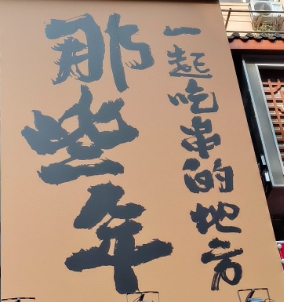 那些年
一起吃串的地方